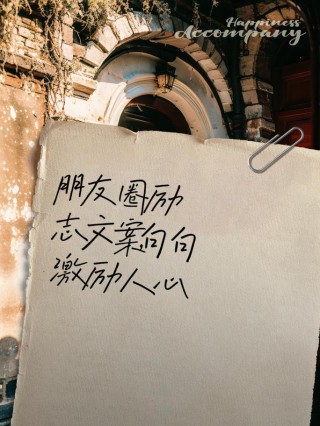 Happiness
Accompany
朋友圈励
志文案句句
激励人心